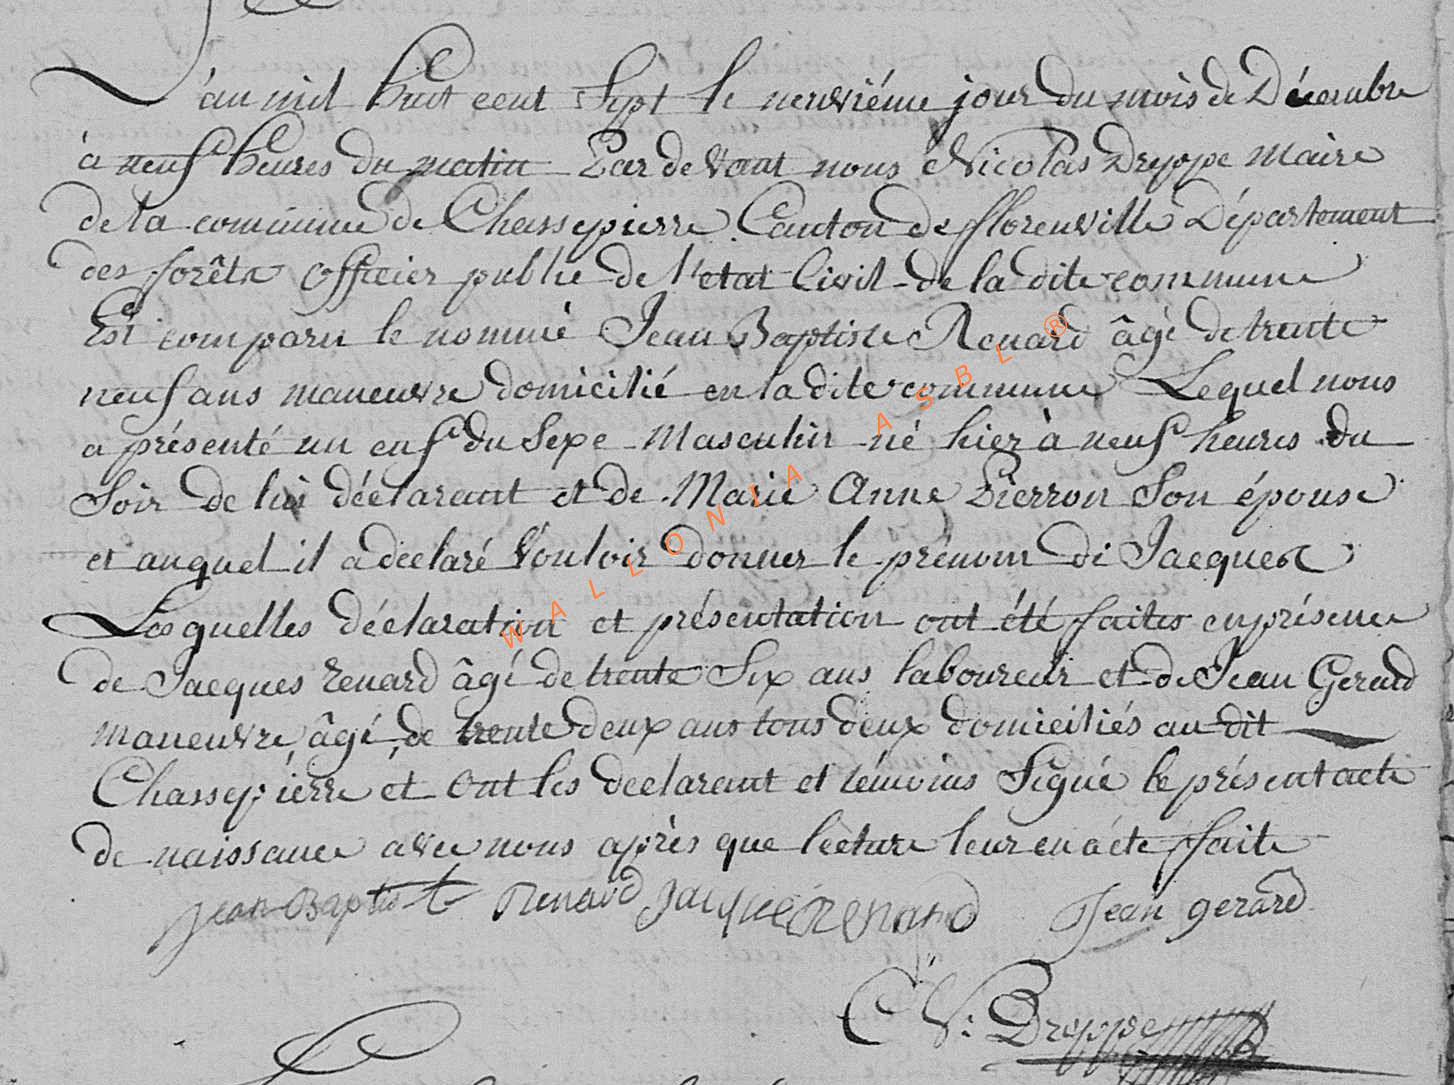 L'an mil huit cent Sept le neuvième jour du mois de Décembre
à neuf heures du matin Par devant nous Nicolas Dreppe Maire
de la commune de Chassepierre Canton de florenville Département
des forêts officier public de l'etat Civil de la dite commune
Est comparu le nommé Jean Baptiste Renard âgé de trente
neuf ans maneuvre domicilié en la dite commune Lequel nous
a présenté un enf du Sexe Masculin né hier à neuf heures du
Soir de lui déclarant et de Marie Anne Pierron Son épouse
et auquel il a declaré Vouloir donner le prénom de Jacques
Lesquelles déclaration et présentation ont été faites en présence
de Jacques renard âgé de trente Six ans laboureur et de Jean Gerard
maneuvre âgé de trente deux ans tous deux domiciliés au dit
Chassepierre et ont les declarant et témoins Signé le présent acte
de naissance avec nous après que lecture leur en a éte faite
jean Baptist renard jacque renard jean gerard
N: Dreppe
WALLONIA ASBL ®